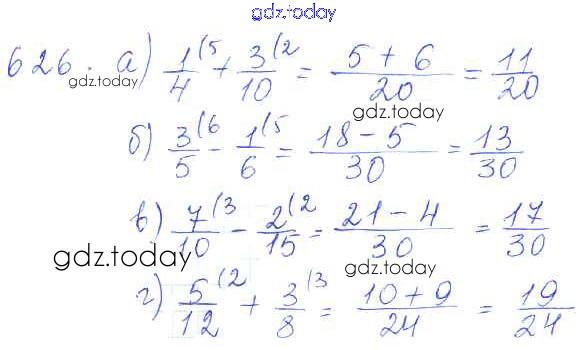 gdz.today
626. а) 1/4 (5 + 3/10 (2 = (5 + 6)/20 = 11/20
gdz.today gdz.today
б) 3/5 (6 - 1/6 (5 = (18 - 5)/30 = 13/30
в) 7/10 (3 - 2/15 (2 = (21 - 4)/30 = 17/30
gdz.today gdz.today
г) 5/12 (2 + 3/8 (3 = (10 + 9)/24 = 19/24